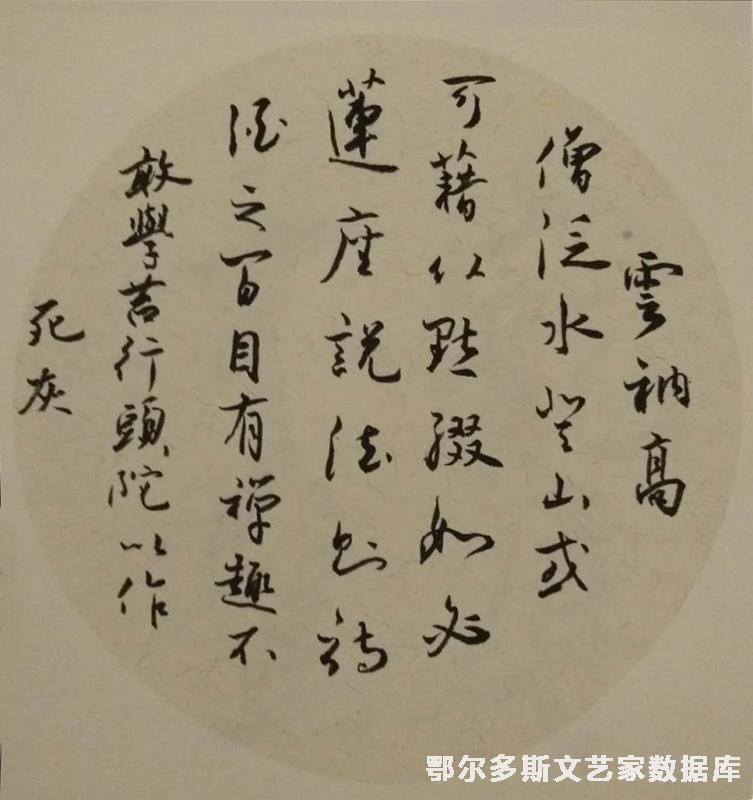 雲衲高
僧泛水登山或
可藉以點綴如必
蓮座説法則詩
酒之間自有禪趣不
敢學苦行頭陀以作
死灰
鄂尔多斯文艺家数据库